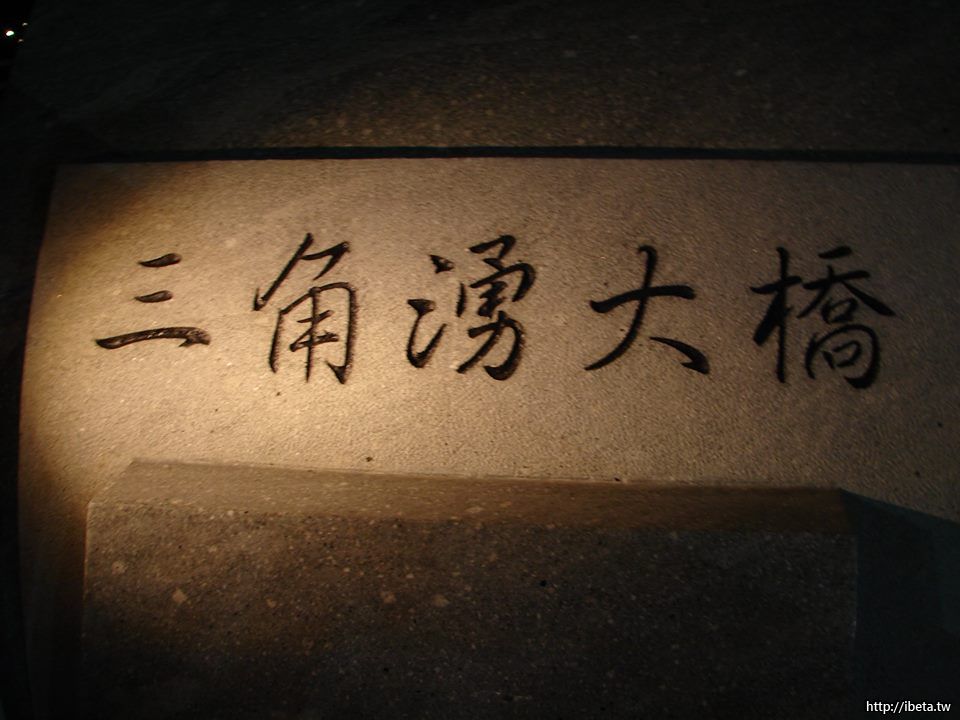 三角湧大橋
http://ibeta.tw